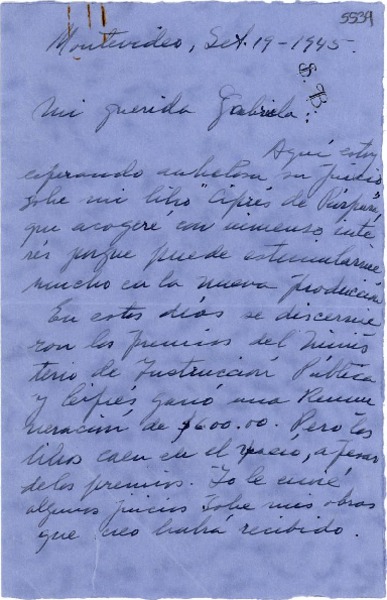 5539
Montevideo, Set. 19-1945.
S.B.
Mi querida Gabriela:
Aquí estoy
esperando anhelosa su juicio
sobre mi libro "Ciprés de Púrpura,
que acogeré con inmenso inte
rés porque puede estimularme
mucho en la nueva producción
En estos días se discernie
ron los premios del Minis
terio de Instrucción Pública
y Ciprés ganó una Remu
neración de $600.00. Pero los
libros caen en el vacío, a pesar
de los premios. Yo le envié
algunos juicios sobre mis obras
que creo habrá recibido.